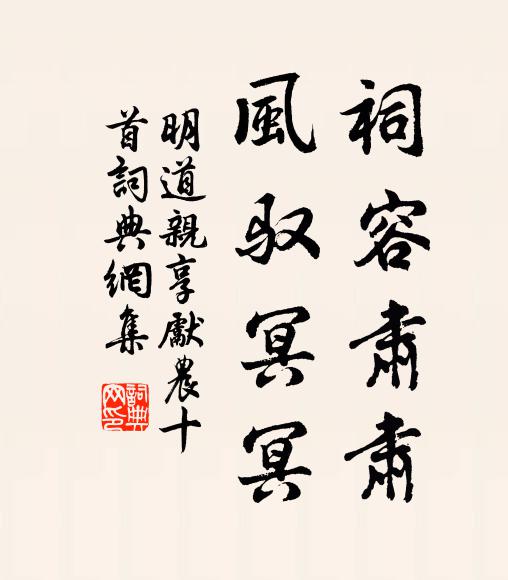 祠容肅肅
風驭冥冥
明道親享獻農十
首詞典網集
詞典
网印